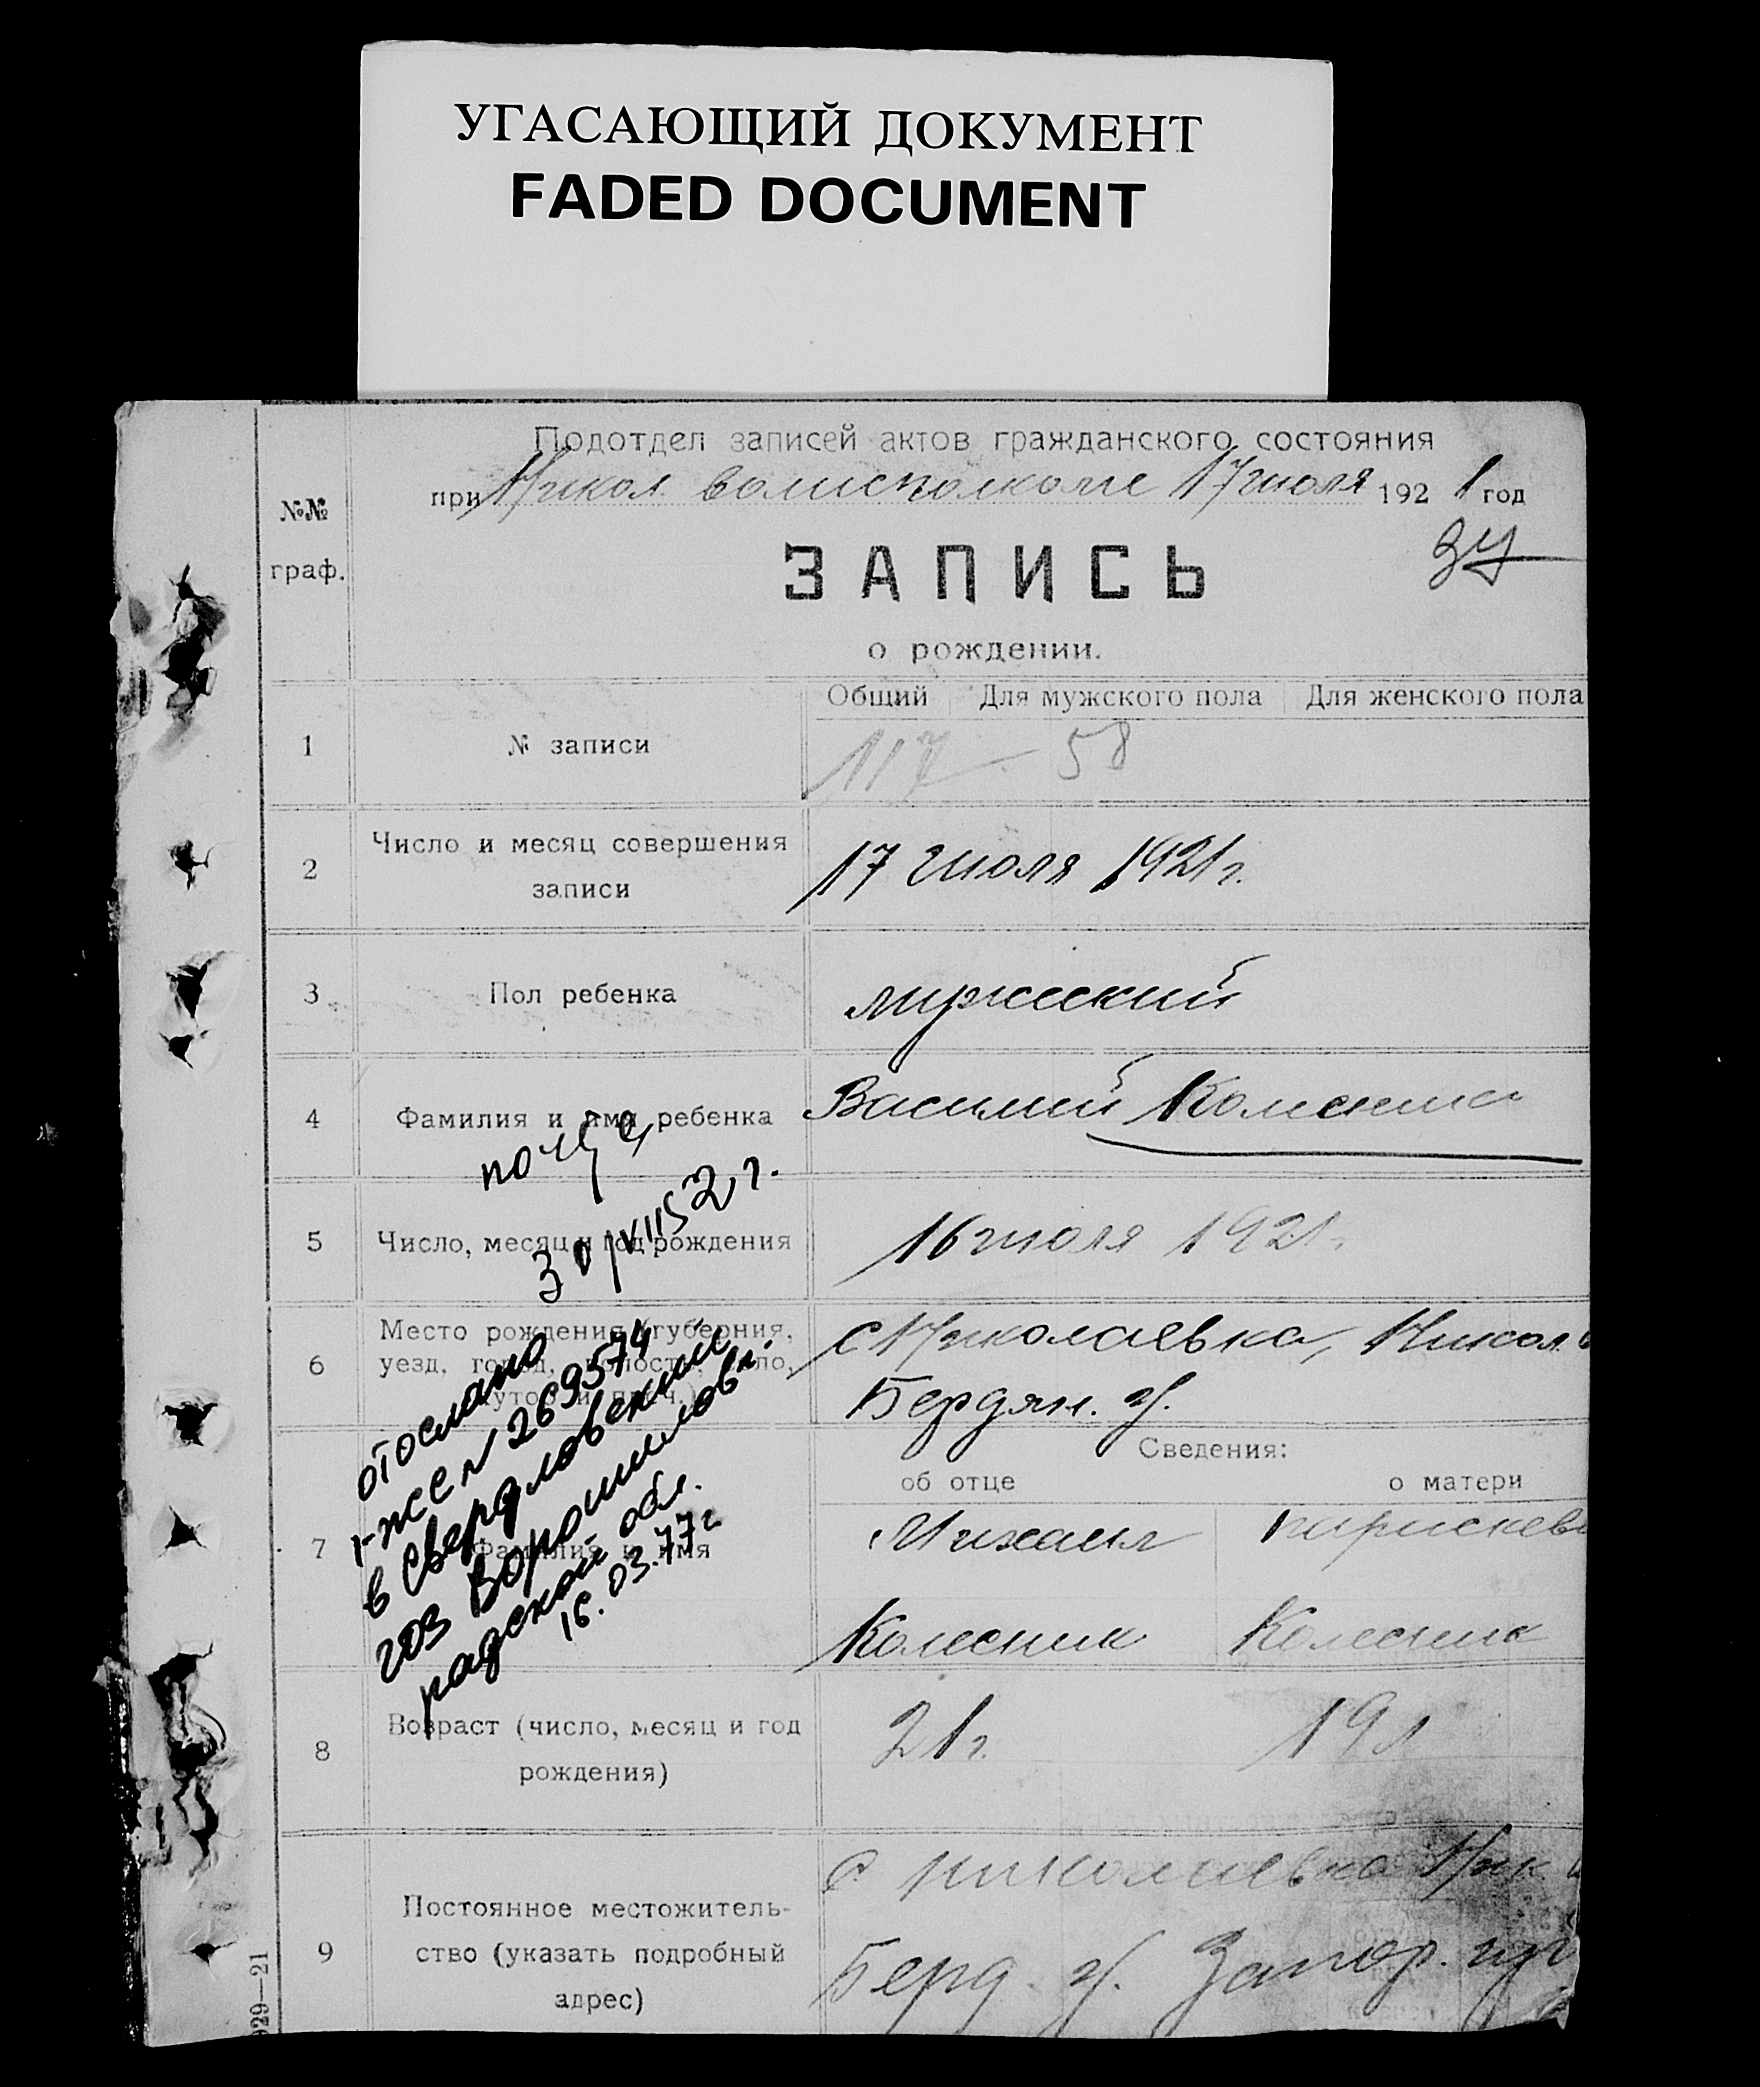 УГАСАЮЩИЙ ДОКУМЕНТ
FADED DOCUMENT
Подотдел записей актов гражданского состояния
при Никол. волисполкоме 17 июля 1921 год
№№
граф.
ЗАПИСЬ
о рождении.
Общий Для мужского пола Для женского пола
1 № записи 117 58
2 Число и месяц совершения
записи
17 июля 1921 г.
3 Пол ребенка мужеский
4 Фамилия и имя ребенка Василий Колесник
30/VII 52 г.
5 Число, месяц и год рождения 16 июля 1921 г.
6 Место рождения (губерния,
уезд, город, волость, село,
хутор и проч.)
с Николаевка, Никол. в
Бердян. у.
Сведения:
об отце о матери
7 Фамилия и имя
Михаил Параскева
Колесник Колесник
отослано
в Свердловский
Ворошиловг.
радской обл.
16.03.77 г.
8 Возраст (число, месяц и год
рождения)
21 г. 19 л
9 Постоянное местожитель-
ство (указать подробный
адрес)
с Николаевка Ник. в
Берд. у. Запор. губ
929—21